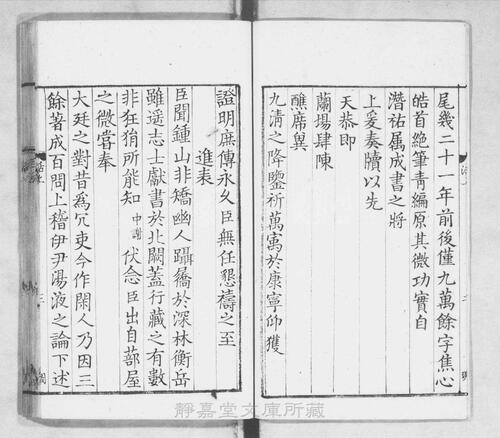 尾幾二十一年前後僅九萬餘字焦心
皓首絶筆青編原其微功實自
潛祐属成書之將
上爰奏牘以先
天恭即
蘭場肆陳
醮席异
九清之降鑒祈萬寓於康寧仰獲
證明庶傳永久臣無任懇禱之至
進表
臣聞鍾山非矯幽人躡屩於深林衡岳
雖遥志士獻書於北闕蓋行藏之有數
非狂狷所能知中謝伏念臣出自蔀屋
之微嘗奉
大廷之對昔為冗吏今作閑人乃因三
餘著成百問上稽伊尹湯液之論下述
靜嘉堂文庫所藏